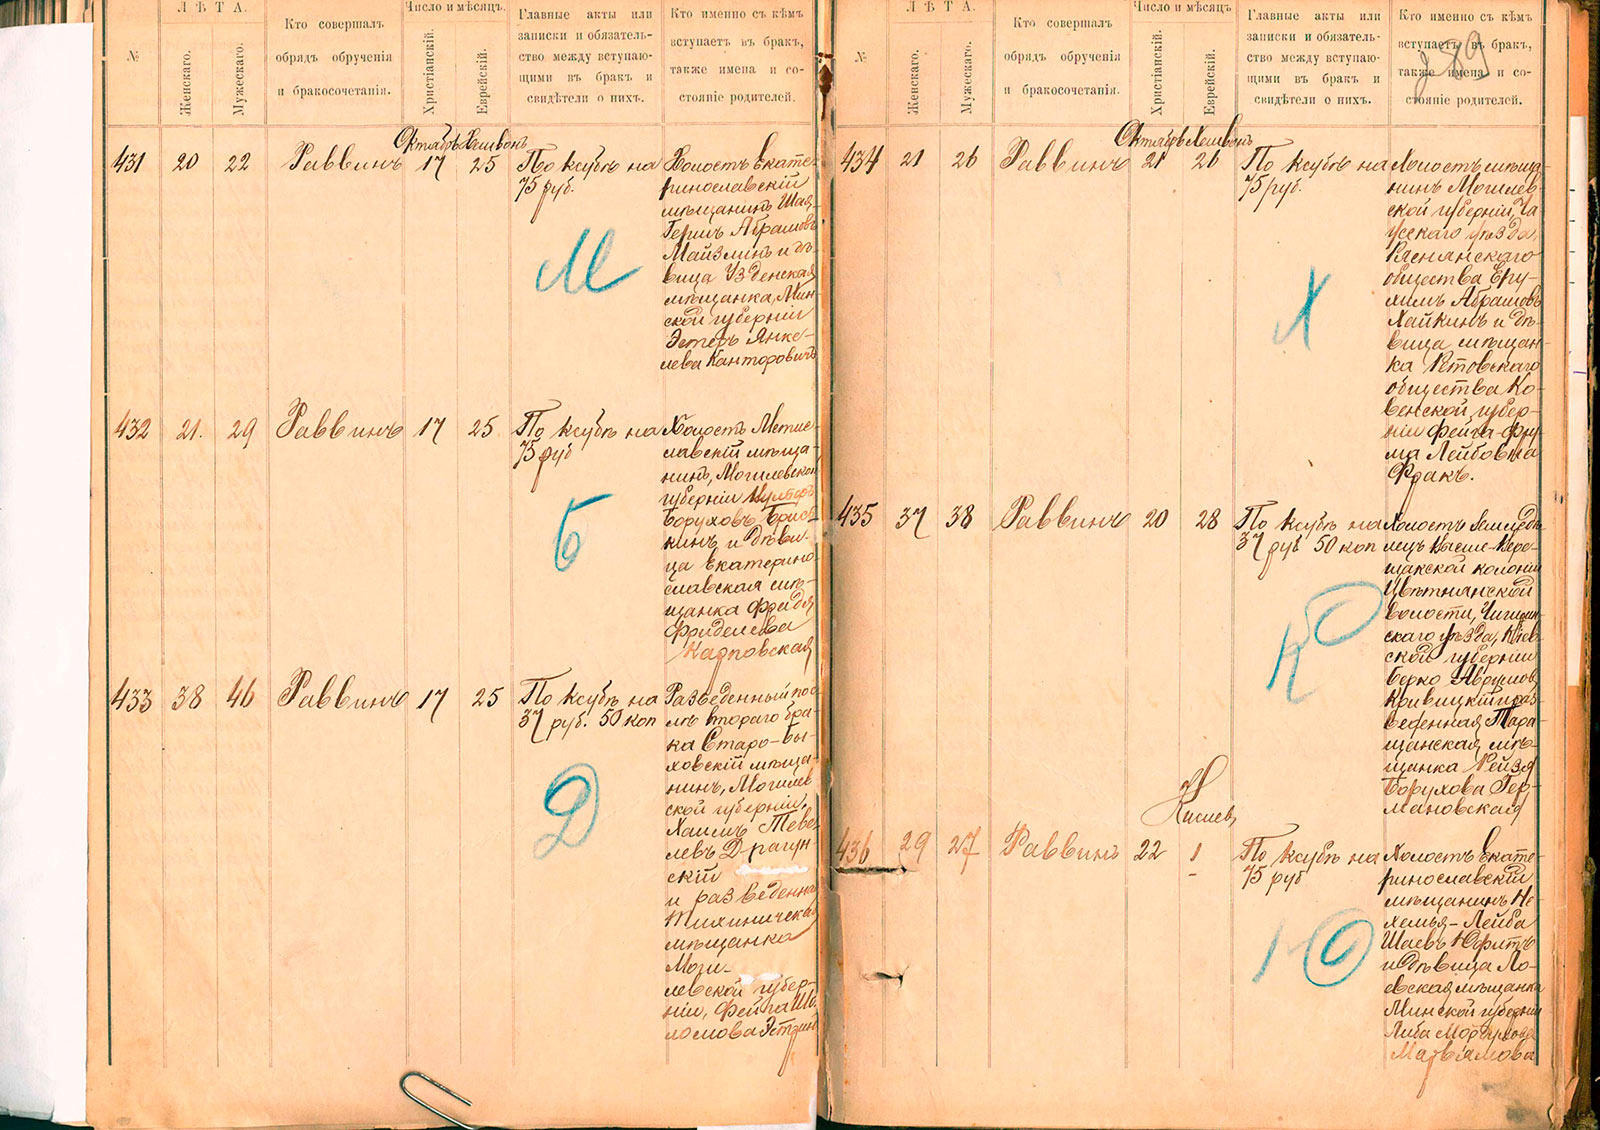 №
ЛѢТА.
Женскаго.
Мужескаго.
Кто совершалъ
обрядъ обрученія
и бракосочетанія.
Число и мѣсяцъ.
Христіанскій.
Еврейскій.
Главные акты или
записки и обязатель-
ство между вступаю-
щими въ бракъ и
свидѣтели о нихъ.
Кто именно съ кѣмъ
вступаетъ въ бракъ,
также имена и со-
стояніе родителей.
Октябрь Хешвонъ
431 20 22 Раввинъ 17 25
По ксубѣ на
75 руб.
М
Холостъ Екате-
ринославскій
мѣщанинъ Шая-
Гершъ Абрамовъ
Майзлинъ и дѣ-
вица Узденская
мѣщанка, Мин-
ской губерніи
Эстеръ Янке-
лева Канторовичъ
432 21. 29 Раввинъ 17 25
По ксубѣ на
75 руб
Б
Холостъ Мстис-
лавскій мѣща-
нинъ, Могилевской
губерніи
Боруховъ
кинъ и дѣви-
ца Екатерино-
славская мѣ-
щанка Фрадя
Фриделева
Карповская
433 38 46 Раввинъ 17 25
По ксубѣ на
37 руб. 50 коп
Д
Разведенный пос-
лѣ втораго бра-
ка Старо-Бы-
ховскій мѣща-
нинъ, Могилев
ской губерніи,
Хаимъ Теве-
левъ Драгун-
скій
и разведенная
Тихиничская
мѣщанка
Моги-
левской губер-
ніи, Фейга Шо-
ломова
№
ЛѢТА.
Женскаго.
Мужескаго.
Кто совершалъ
обрядъ обрученія
и бракосочетанія.
Число и мѣсяцъ.
Христіанскій.
Еврейскій.
Главные акты или
записки и обязатель-
ство между вступаю-
щими въ бракъ и
свидѣтели о нихъ.
Кто именно съ кѣмъ
вступаетъ въ бракъ,
также имена и со-
стояніе родителей.
89
Октябрь Хешвонъ
434 21 26 Раввинъ 21 26
По ксубѣ на
75 руб.
Х
Холостъ мѣща-
нинъ Могилев-
ской губерніи, Ча
усскаго уѣзда,
Рясенянскаго
общества Еру-
химъ Абрамовъ
Хайкинъ и дѣ-
вица мѣщан-
ка Ретовскаго
общества Ко-
венской губер-
ніи Фейга-Фру-
ма Лейбовна
Фракъ.
435 37 38 Раввинъ 20 28
По ксубѣ на
37 руб 50 коп
Холостъ Земледѣ-
лецъ Высше-Вере-
щакской колоніи
Цвѣтнянской
волости, Чигирин-
скаго уѣзда, Кіев-
ской губерніи
Берко Аврумов
Кривицкій и раз-
веденная Тара-
щанская мѣ-
щанка Рейзя
Борухова Гер-
мановская
Кислев
436 29 27 Раввинъ 22 1
По ксубѣ на
75 руб
Ю
Холостъ Екате-
ринославскій
мѣщанинъ Не-
хемья-Лейба
Шаевъ Юфитъ
и дѣвица Ло-
евская мѣщанка
Минской губерніи
Либа Мордухова